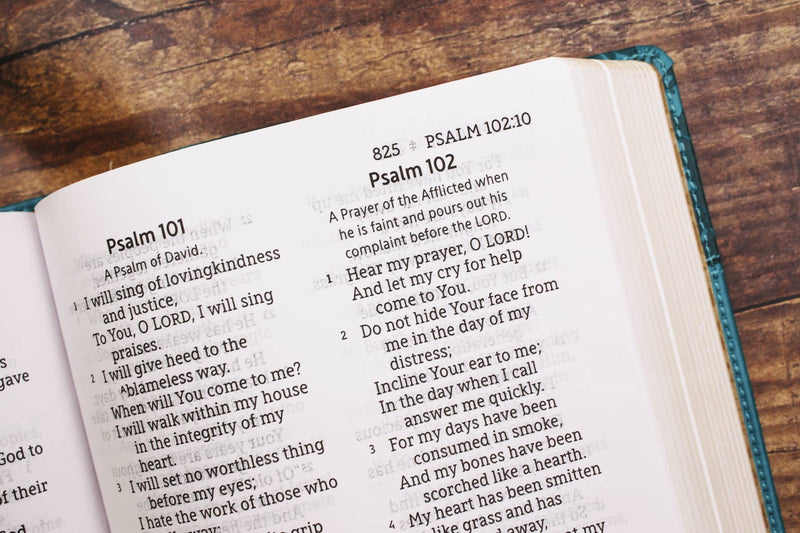 gave
God to
of their
God
825 ‡ PSALM 102:10
Psalm 101
A Psalm of David.
1 I will sing of lovingkindness
and justice,
To You, O LORD, I will sing
praises.
2 I will give heed to the
blameless way.
When will You come to me?
I will walk within my house
in the integrity of my
heart.
3 I will set no worthless thing
before my eyes;
I hate the work of those who
grip
Psalm 102
A Prayer of the Afflicted when
he is faint and pours out his
complaint before the LORD.
1 Hear my prayer, O LORD!
And let my cry for help
come to You.
2 Do not hide Your face from
me in the day of my
distress;
Incline Your ear to me;
In the day when I call
answer me quickly.
3 For my days have been
consumed in smoke,
And my bones have been
scorched like a hearth.
4 My heart has been smitten
like grass and has
away,
my